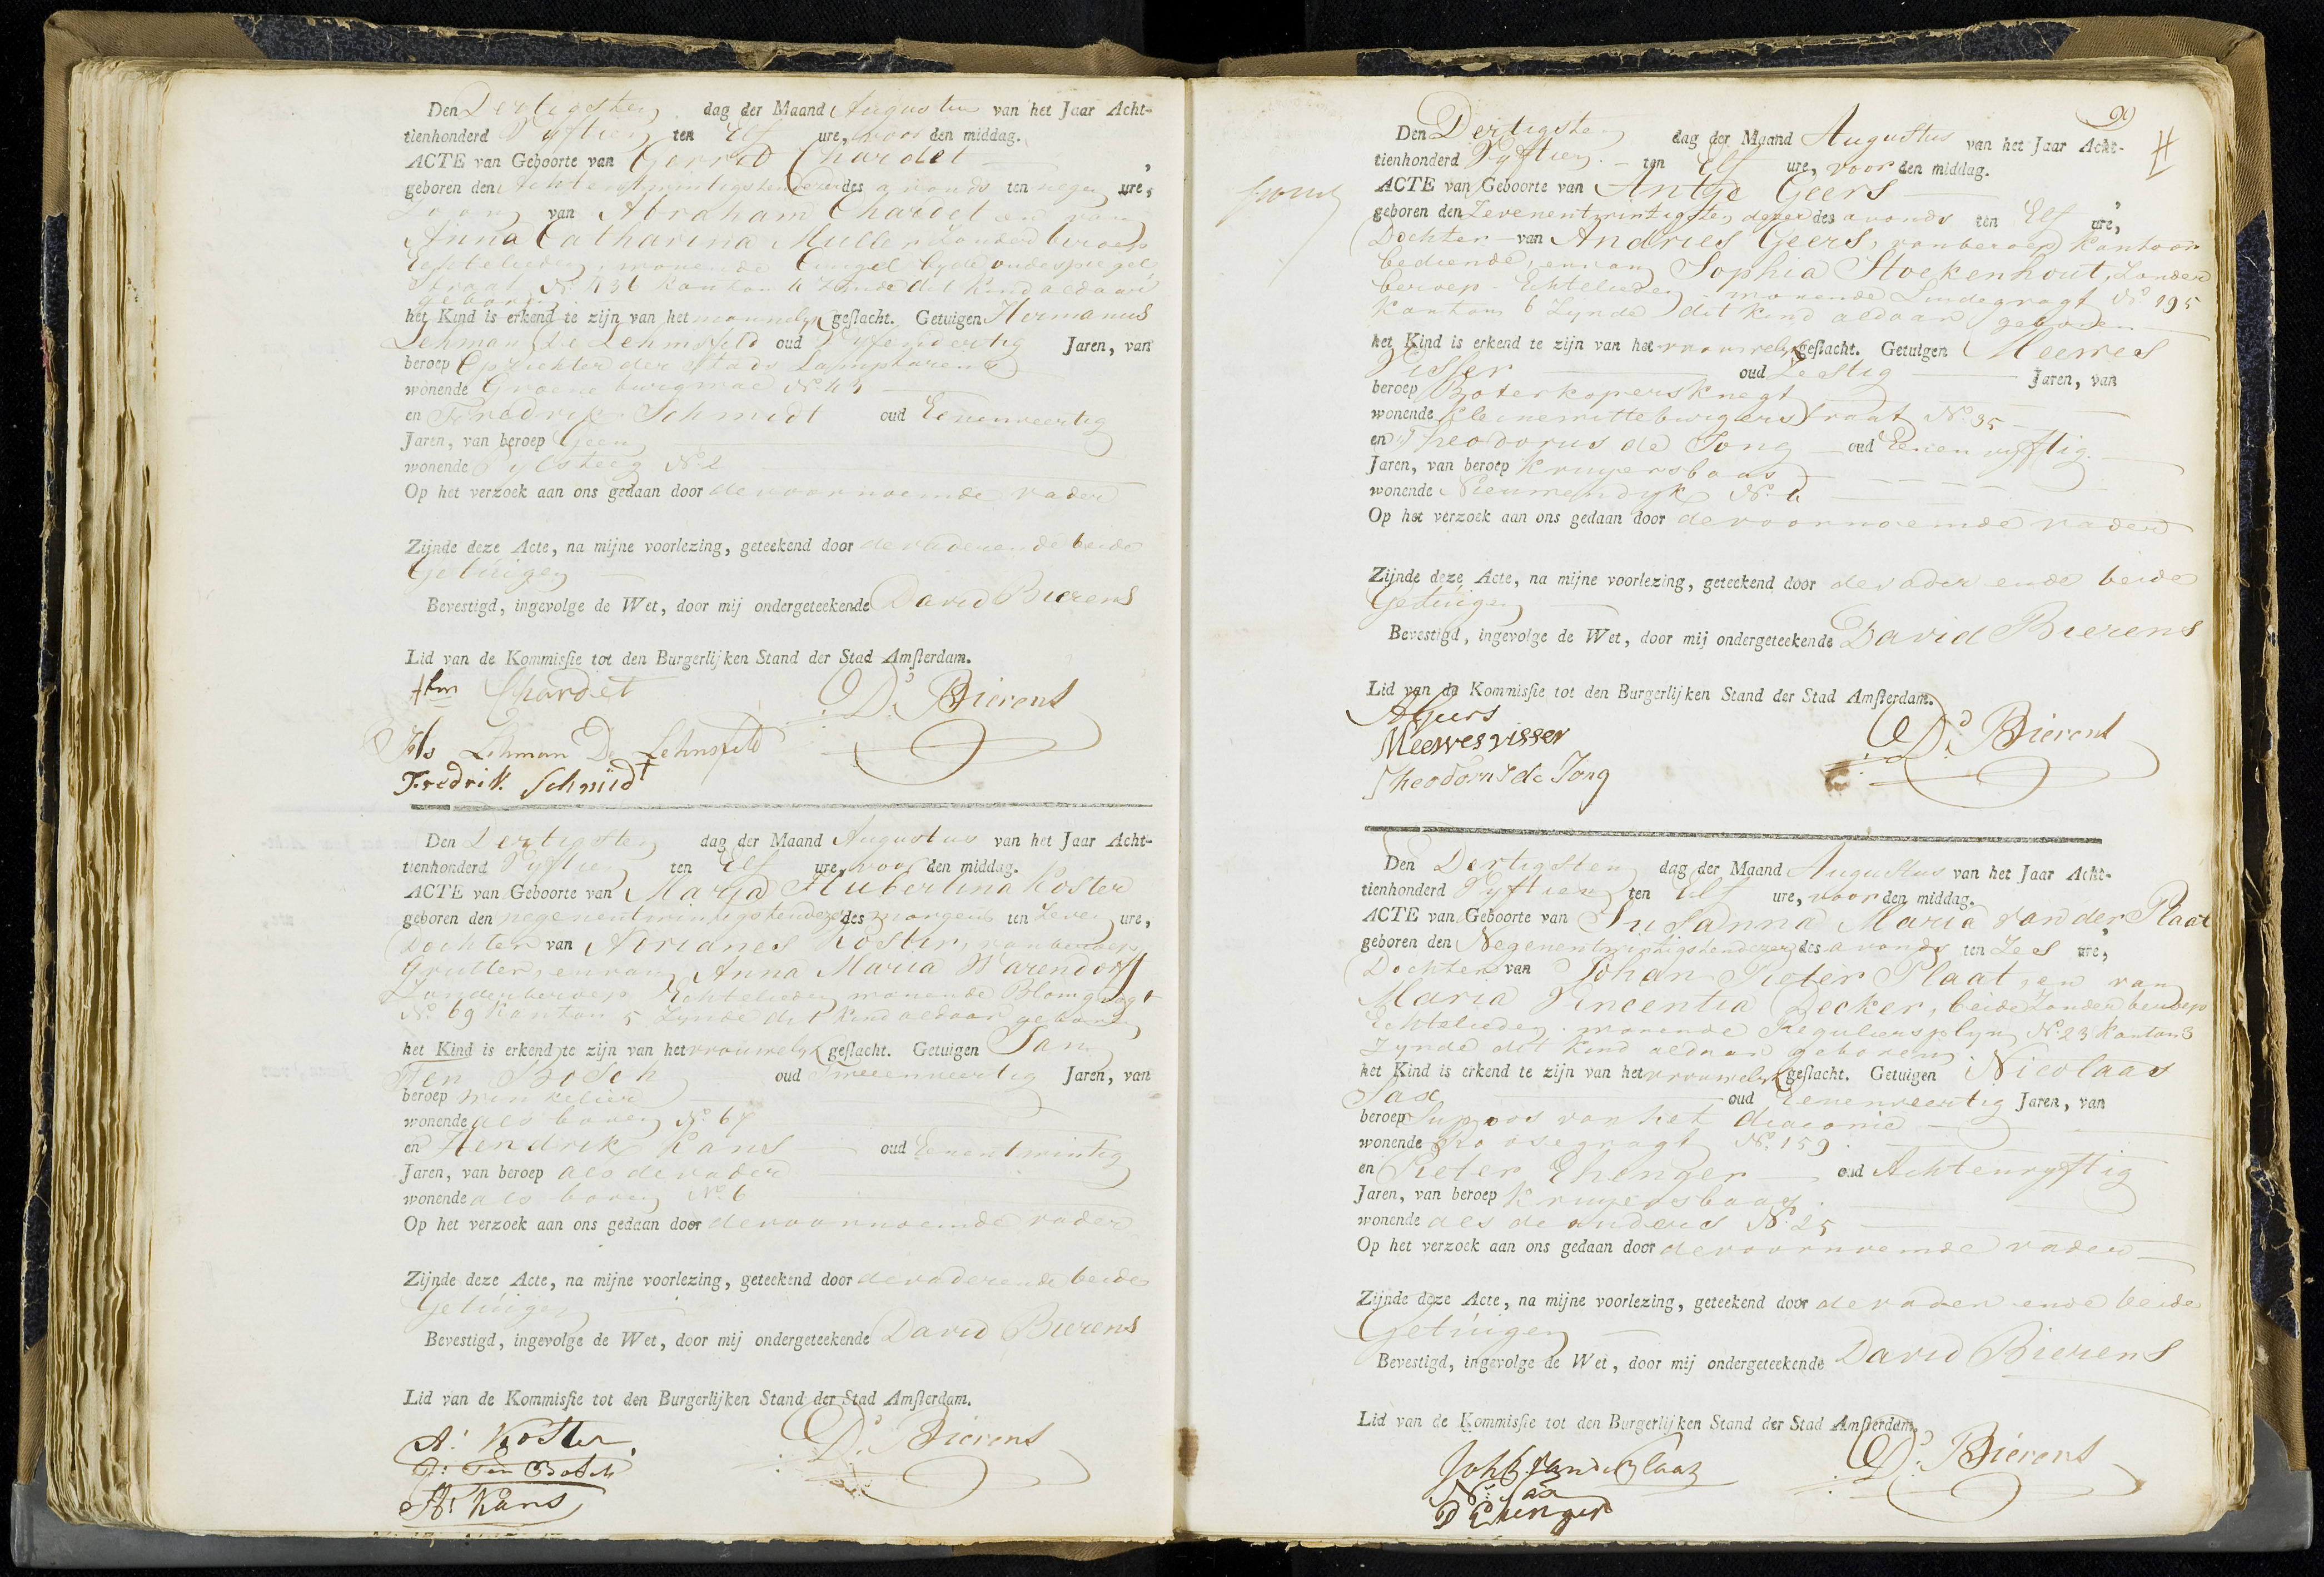 Den Dertigsten dag der Maand Augustus van het Jaar Acht-
tienhonderd Vyftien ten Elf ure, voor den middag.
ACTE van Geboorte van Gerrit Chardet,
geboren den Achtentwintigsten dezer des avonds ten negen ure,
Zoon van Abraham Chardet en van
Anna Catharina Muller Zonder beroep
Echtelieden, wonende Cingel by de oude spiegel
straat No 436 kanton 4 Zynde dit kind aldaar
geboren
het Kind is erkend te zijn van het mannelyk geslacht. Getuigen Hermanus
Lehman De Lehnsfeld oud Vyfendertig Jaren, van
beroep Opzichter der Stads Lamptarens
wonende Groene burgwal No 45
en Fredrik Schmidt oud Eenenveertig
Jaren, van beroep Geen
wonende Pylsteeg No 2
Op het verzoek aan ons gedaan door de voornoemde vader
Zijnde deze Acte, na mijne voorlezing, geteekend door de vader en de beide
Getuigen
Bevestigd, ingevolge de Wet, door mij ondergeteekende David Bierens
Lid van de Kommissie tot den Burgerlijken Stand der Stad Amsterdam.
Chardet
Ds Bierens
Lehman De Lehnsfeld
Fredrik Schmidt
Den Dertigsten dag der Maand Augustus van het Jaar Acht-
tienhonderd Vyftien ten Elf ure, voor den middag.
ACTE van Geboorte van Maria Hubertina Koster
geboren den negenentwintigsten dezer des morgens ten Zeven ure,
Dochter van Adrianes Koster, van beroep
Grutter, en van Anna Maria Warendorff
Zonder beroep Echtelieden wonende Blomgragt
No 69 Kanton 5 Zynde dit Kind aldaar geboren
het Kind is erkend te zijn van het vrouwelyk geslacht. Getuigen Jan
Ten Bosch oud Tweeenveertig Jaren, van
beroep Winkelier
wonende als boven No 67
en Hendrik Kans oud Eenentwintig
Jaren, van beroep als de vader
wonende als boven No 6
Op het verzoek aan ons gedaan door de voornoemde vader
Zijnde deze Acte, na mijne voorlezing, geteekend door de vader en de beide
Getuigen
Bevestigd, ingevolge de Wet, door mij ondergeteekende David Bierens
Lid van de Kommissie tot den Burgerlijken Stand der Stad Amsterdam.
A: Koster
Ds Bierens
J: Ten Bosch
H: Kans
Den Dertigsten dag der Maand Augustus van het Jaar Acht-
tienhonderd Vyftien ten Elf ure, voor den middag.
ACTE van Geboorte van Antje Geers,
geboren den Zevenentwintigsten dezer des avonds ten Elf ure,
Dochter van Andries Geers, van beroep Kantoor
bediende, en van Sophia Stoekenhout, Zonder
beroep Echtelieden wonende Lindegragt No 195
Kanton 6 Zynde dit kind aldaar geboren
het Kind is erkend te zijn van het vrouwelyk geslacht. Getuigen Meewes
Visser oud Zestig Jaren, van
beroep Boterkopersknegt
wonende Kleine Wittebwigerstraat No 35
en Theodorus de Jong oud Eenenvyftig
Jaren, van beroep Kruyersbaas
wonende Nieuwendyk No 6
Op het verzoek aan ons gedaan door de voornoemde vader
Zijnde deze Acte, na mijne voorlezing, geteekend door de vader en de beide
Getuigen
Bevestigd, ingevolge de Wet, door mij ondergeteekende David Bierens
Lid van de Kommissie tot den Burgerlijken Stand der Stad Amsterdam.
AGeers
Meewes visser
Ds Bierens
Theodorus de Jong
Den Dertigsten dag der Maand Augustus van het Jaar Acht-
tienhonderd Vyftien ten Elf ure, voor den middag.
ACTE van Geboorte van Susanna Maria van der Plaat,
geboren den Negenentwintigsten dezer des avonds ten Zes ure,
Dochter van Johan Pieter Plaat, en van
Maria Vincentia Decker, beide Zonder beroep
Echtelieden wonende Reguliersplyn No 23 Kanton 3
Zynde dit Kind aldaar geboren
het Kind is erkend te zijn van het vrouwelyk geslacht. Getuigen Nicolaas
Sax oud Eenenveertig Jaren, van
beroep Suppoos van het diaconie
wonende Roosegragt No 159
en Pieter Ehenger oud Achtenvyftig
Jaren, van beroep Kruyersbaas
wonende als de anders No 25
Op het verzoek aan ons gedaan door de voornoemde vader
Zijnde deze Acte, na mijne voorlezing, geteekend door de vader en de beide
Getuigen
Bevestigd, ingevolge de Wet, door mij ondergeteekende David Bierens
Lid van de Kommissie tot den Burgerlijken Stand der Stad Amsterdam.
Joh P van der Plaat
Ds Bierens
N: Sax
P Ehenger